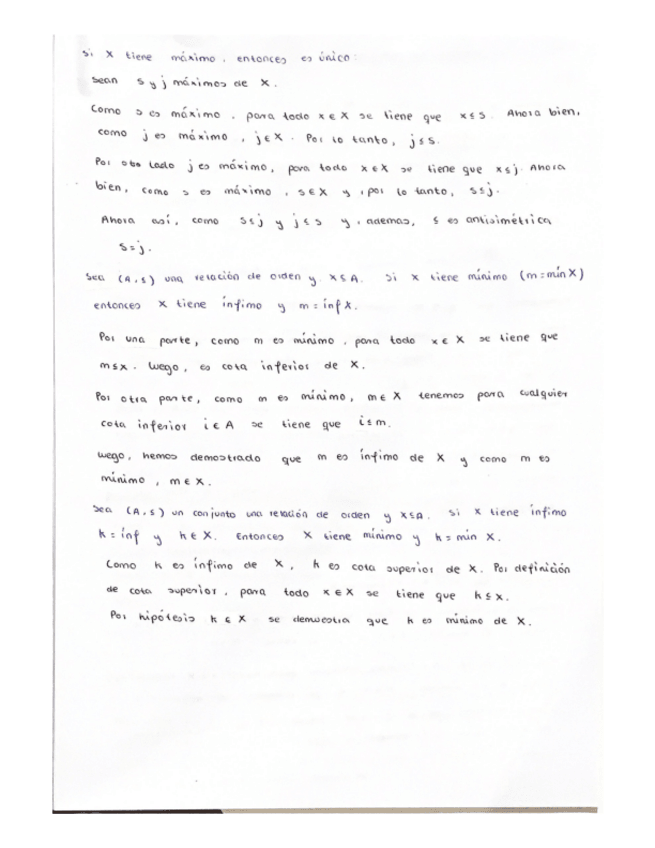 Si X tiene máximo, entonces es único:
Sean s y j máximos de X.
Como s es máximo, para todo x ∈ X se tiene que x ≤ s. Ahora bien,
como j es máximo, j ∈ X. Por lo tanto, j ≤ s.
Por otro lado j es máximo, para todo x ∈ X se tiene que x ≤ j. Ahora
bien, como s es máximo, s ∈ X y, por lo tanto, s ≤ j.
Ahora así, como s ≤ j y j ≤ s y, además, ≤ es antisimétrica
s = j.
Sea (A, ≤) una relación de orden y X ⊆ A. Si X tiene mínimo (m = mín X)
entonces X tiene ínfimo y m = ínf X.
Por una parte, como m es mínimo, para todo x ∈ X se tiene que
m ≤ x. Luego, es cota inferior de X.
Por otra parte, como m es mínimo, m ∈ X tenemos para cualquier
cota inferior i ∈ A se tiene que i ≤ m.
Luego, hemos demostrado que m es ínfimo de X y como m es
mínimo, m ∈ X.
Sea (A, ≤) un conjunto una relación de orden y X ⊆ A. Si X tiene ínfimo
k = ínf y k ∈ X. Entonces X tiene mínimo y k = mín X.
Como k es ínfimo de X, k es cota superior de X. Por definición
de cota superior, para todo x ∈ X se tiene que k ≤ x.
Por hipótesis k ∈ X se demuestra que k es mínimo de X.